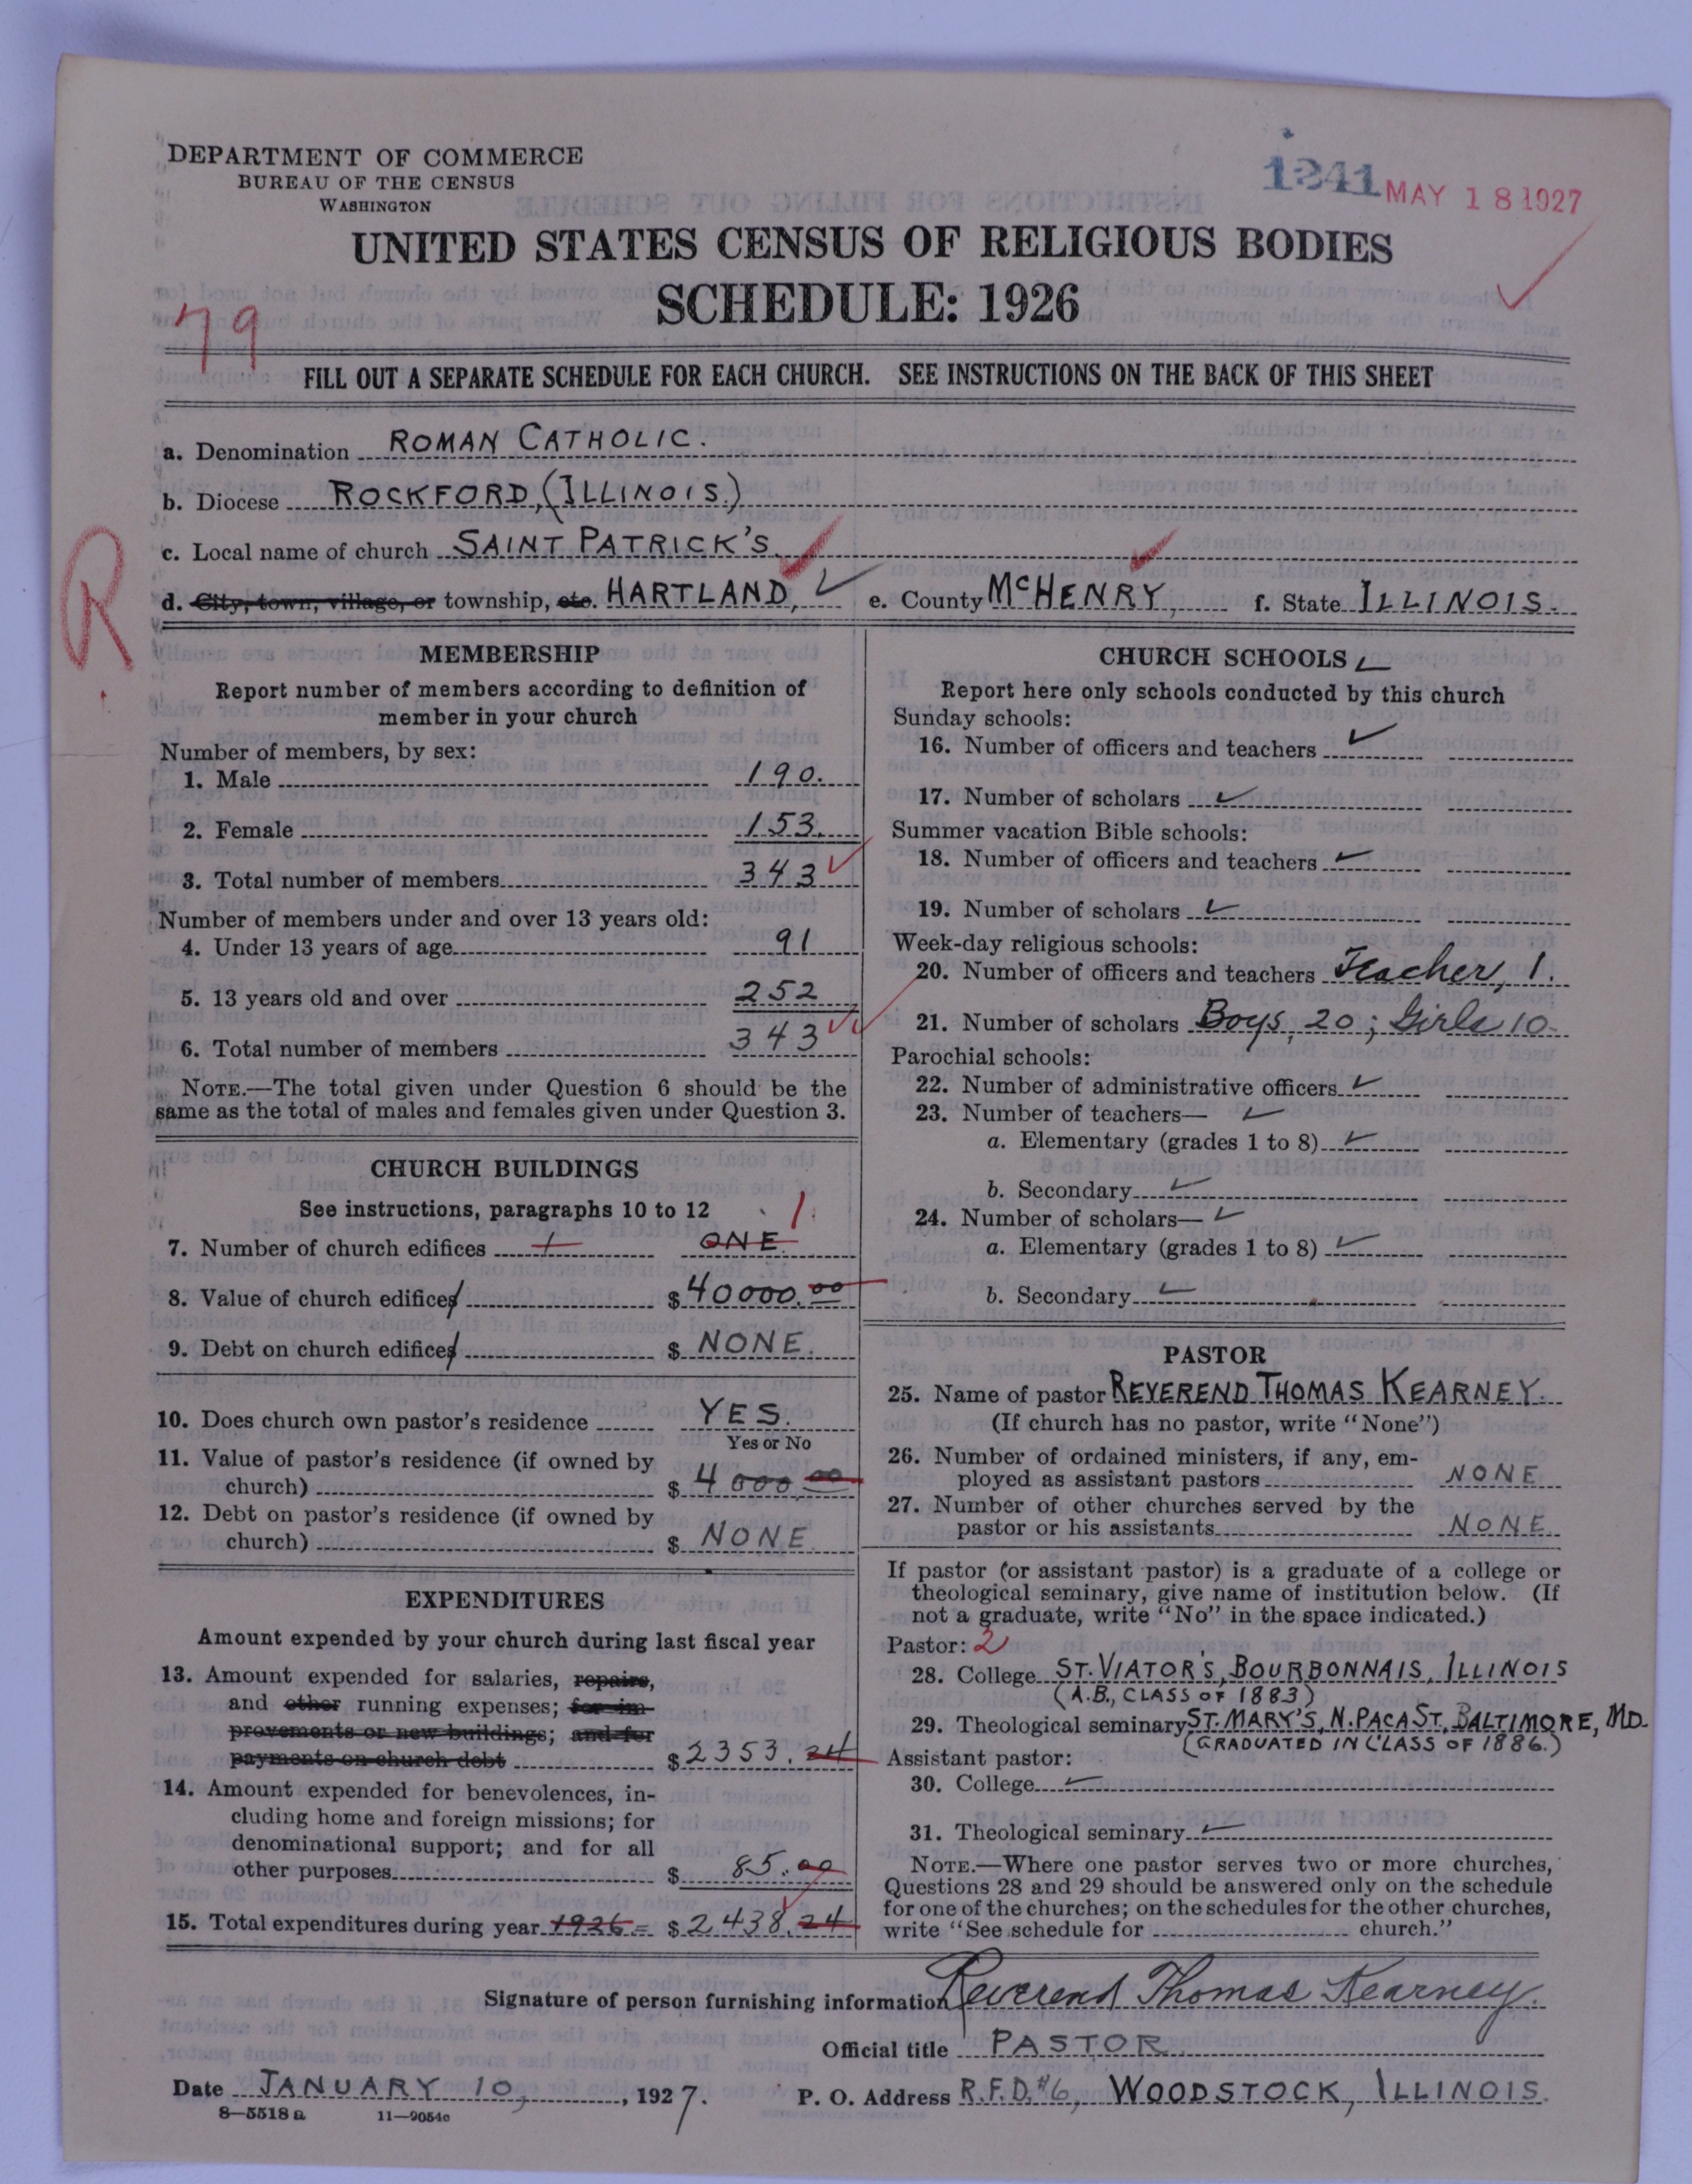 DEPARTMENT OF COMMERCE
BUREAU OF THE CENSUS
WASHINGTON
1241 MAY 18 1927
UNITED STATES CENSUS OF RELIGIOUS BODIES
SCHEDULE: 1926
79
FILL OUT A SEPARATE SCHEDULE FOR EACH CHURCH. SEE INSTRUCTIONS ON THE BACK OF THIS SHEET
a. Denomination ROMAN CATHOLIC.
b. Diocese ROCKFORD, (ILLINOIS.)
c. Local name of church SAINT PATRICK'S
R
d. City, town, village, or township, etc. HARTLAND, e. County McHENRY, f. State ILLINOIS.
MEMBERSHIP
Report number of members according to definition of
member in your church
Number of members, by sex:
1. Male 190.
2. Female 153.
3. Total number of members 343
Number of members under and over 13 years old:
4. Under 13 years of age 91
5. 13 years old and over 252
6. Total number of members 343
NOTE.—The total given under Question 6 should be the
same as the total of males and females given under Question 3.
CHURCH BUILDINGS
See instructions, paragraphs 10 to 12 1
7. Number of church edifices 1 ONE.
8. Value of church edifices $40000.00
9. Debt on church edifices $ NONE.
10. Does church own pastor's residence YES.
Yes or No
11. Value of pastor's residence (if owned by
church) $ 4000.00
12. Debt on pastor's residence (if owned by
church) $ NONE
EXPENDITURES
Amount expended by your church during last fiscal year
13. Amount expended for salaries, repairs,
and other running expenses; for im-
provements or new buildings; and for
payments on church debt $2353.24
14. Amount expended for benevolences, in-
cluding home and foreign missions; for
denominational support; and for all
other purposes $ 85.00
15. Total expenditures during year 1926 = $2,438.24
CHURCH SCHOOLS
Report here only schools conducted by this church
Sunday schools:
16. Number of officers and teachers
17. Number of scholars
Summer vacation Bible schools:
18. Number of officers and teachers
19. Number of scholars
Week-day religious schools:
20. Number of officers and teachers Teacher, 1.
21. Number of scholars Boys, 20; Girls 10
Parochial schools:
22. Number of administrative officers
23. Number of teachers—
a. Elementary (grades 1 to 8)
b. Secondary
24. Number of scholars—
a. Elementary (grades 1 to 8)
b. Secondary
PASTOR
25. Name of pastor REVEREND THOMAS KEARNEY.
(If church has no pastor, write "None")
26. Number of ordained ministers, if any, em-
ployed as assistant pastors NONE
27. Number of other churches served by the
pastor or his assistants NONE
If pastor (or assistant pastor) is a graduate of a college or
theological seminary, give name of institution below. (If
not a graduate, write "No" in the space indicated.)
Pastor: 2
28. College ST. VIATOR'S, BOURBONNAIS, ILLINOIS
(A.B., CLASS OF 1883)
29. Theological seminary ST. MARY'S, N. PACA ST, BALTIMORE, MD.
(GRADUATED IN CLASS OF 1886.)
Assistant pastor:
30. College
31. Theological seminary
NOTE.—Where one pastor serves two or more churches,
Questions 28 and 29 should be answered only on the schedule
for one of the churches; on the schedules for the other churches,
write "See schedule for church."
Signature of person furnishing information Reverend Thomas Kearney.
Official title PASTOR
Date JANUARY 10, 1927. P. O. Address R.F.D. #6, WOODSTOCK, ILLINOIS.
8—5518a 11—9054c